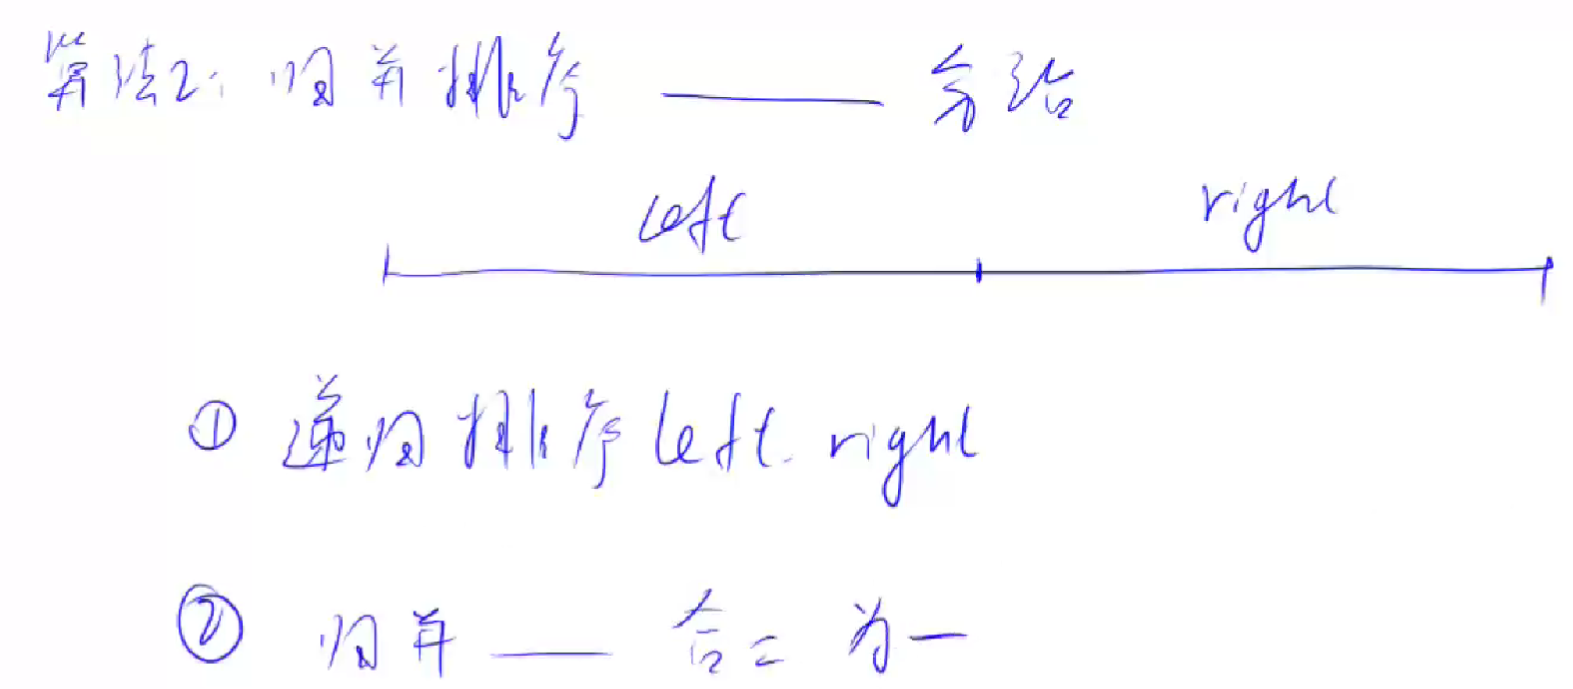 算法2: 归并排序 —— 分治
left right
① 递归排序 left. right
② 归并 —— 合二为一